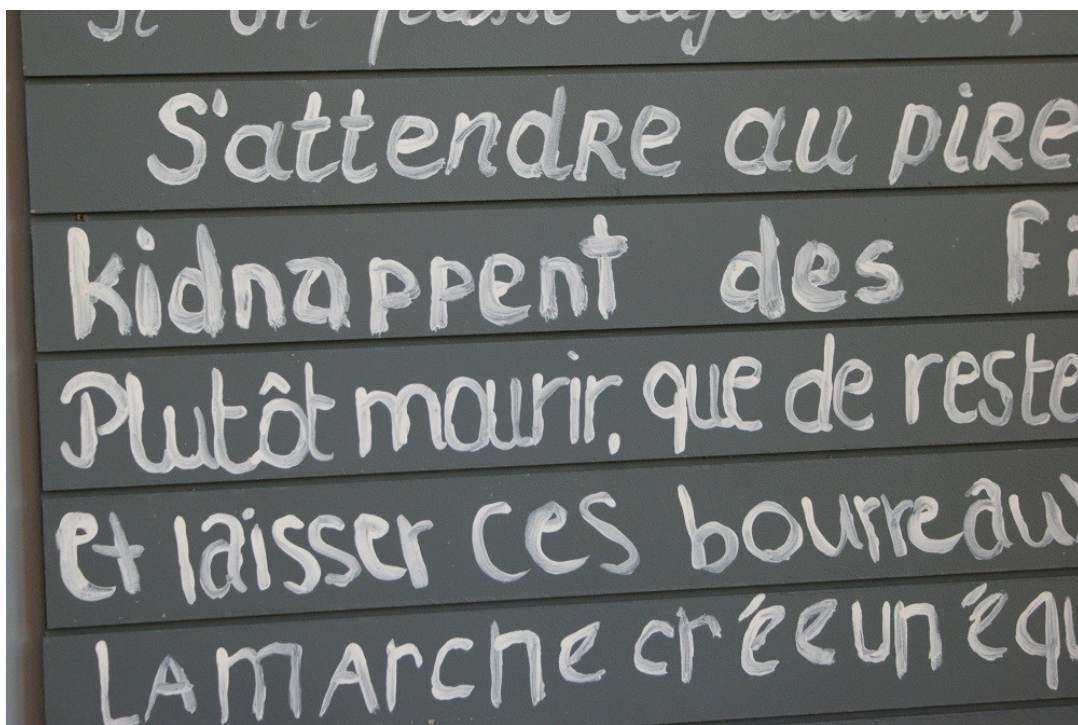 Si on passe aujourd'hui,
S'attendRe au piRe
kidnappent des Fi
Plutôt mourir, que de reste
et laisser ces bourreaux
LA mArche crée un équ